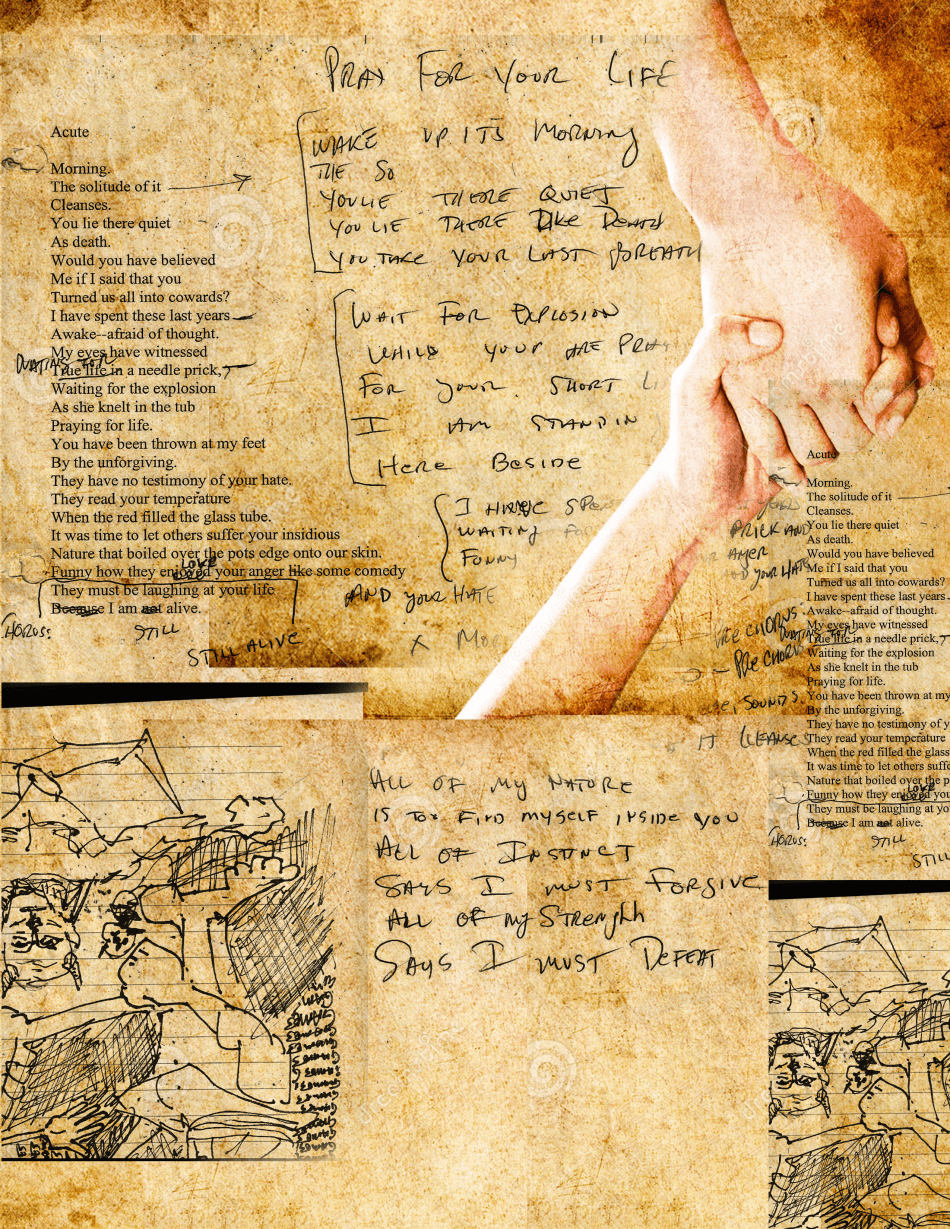 PRAY FOR YOUR LIFE
Acute
Morning.
The solitude of it
Cleanses.
You lie there quiet
As death.
Would you have believed
Me if I said that you
Turned us all into cowards?
I have spent these last years
Awake--afraid of thought.
My eyes have witnessed
WAITING FOR
True life in a needle prick,
Waiting for the explosion
As she knelt in the tub
Praying for life.
You have been thrown at my feet
By the unforgiving.
They have no testimony of your hate.
They read your temperature
When the red filled the glass tube.
It was time to let others suffer your insidious
Nature that boiled over the pots edge onto our skin.
LOVE
Funny how they enjoyed your anger like some comedy
They must be laughing at your life
Because I am not alive.
HORUS:
STILL
STILL ALIVE
WAKE UP ITS MORNING
THE SO
YOU LIE THERE QUIET
YOU LIE THERE LIKE DEATH
YOU TAKE YOUR LAST BREATH
WAIT FOR EXPLOSION
WHILE YOUR ARE PRAY
FOR YOUR SHORT LI
I AM STANDIN
HERE BESIDE
I HAVE SPE
WAITING FO
FUNNY
AND YOUR HATE
X MO
PRICK AND
AMER
OD YOUR HATE
PRE CHORUS:
- PRE CHORU
SOUNDS
IT CLEANSES
Acute
Morning.
The solitude of it
Cleanses.
You lie there quiet
As death.
Would you have believed
Me if I said that you
Turned us all into cowards?
I have spent these last years
Awake--afraid of thought.
My eyes have witnessed
WAITING FOR
True life in a needle prick,
Waiting for the explosion
As she knelt in the tub
Praying for life.
You have been thrown at my
By the unforgiving.
They have no testimony of y
They read your temperature
When the red filled the glass
It was time to let others suffe
Nature that boiled over the p
LOVE
Funny how they enjoyed you
They must be laughing at yo
Because I am not alive.
HORUS:
STILL
STILL
ALL OF MY NATURE
IS TO FIND MYSELF INSIDE YOU
ALL OF INSTINCT
SAYS I MUST FORGIVE
ALL OF MY STRENGHH
SAYS I MUST DEFEAT